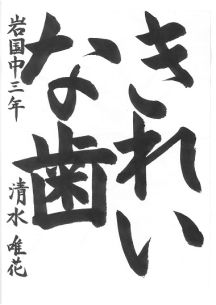 きれい
な歯
岩国中三年 清水唯花